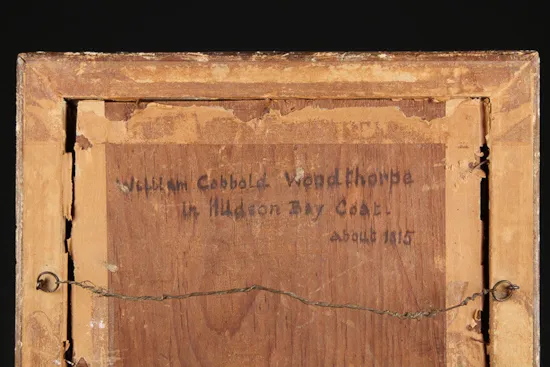 William Cobbold Woodthorpe
in Hudson Bay Coat.
About 1815